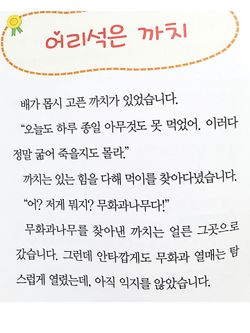 어리석은 까치
배가 몹시 고픈 까치가 있었습니다.
"오늘도 하루 종일 아무것도 못 먹었어. 이러다
정말 굶어 죽을지도 몰라."
까치는 있는 힘을 다해 먹이를 찾아다녔습니다.
"어? 저게 뭐지? 무화과나무다!"
무화과나무를 찾아낸 까치는 얼른 그곳으로
갔습니다. 그런데 안타깝게도 무화과 열매는 탐
스럽게 열렸는데, 아직 익지를 않았습니다.